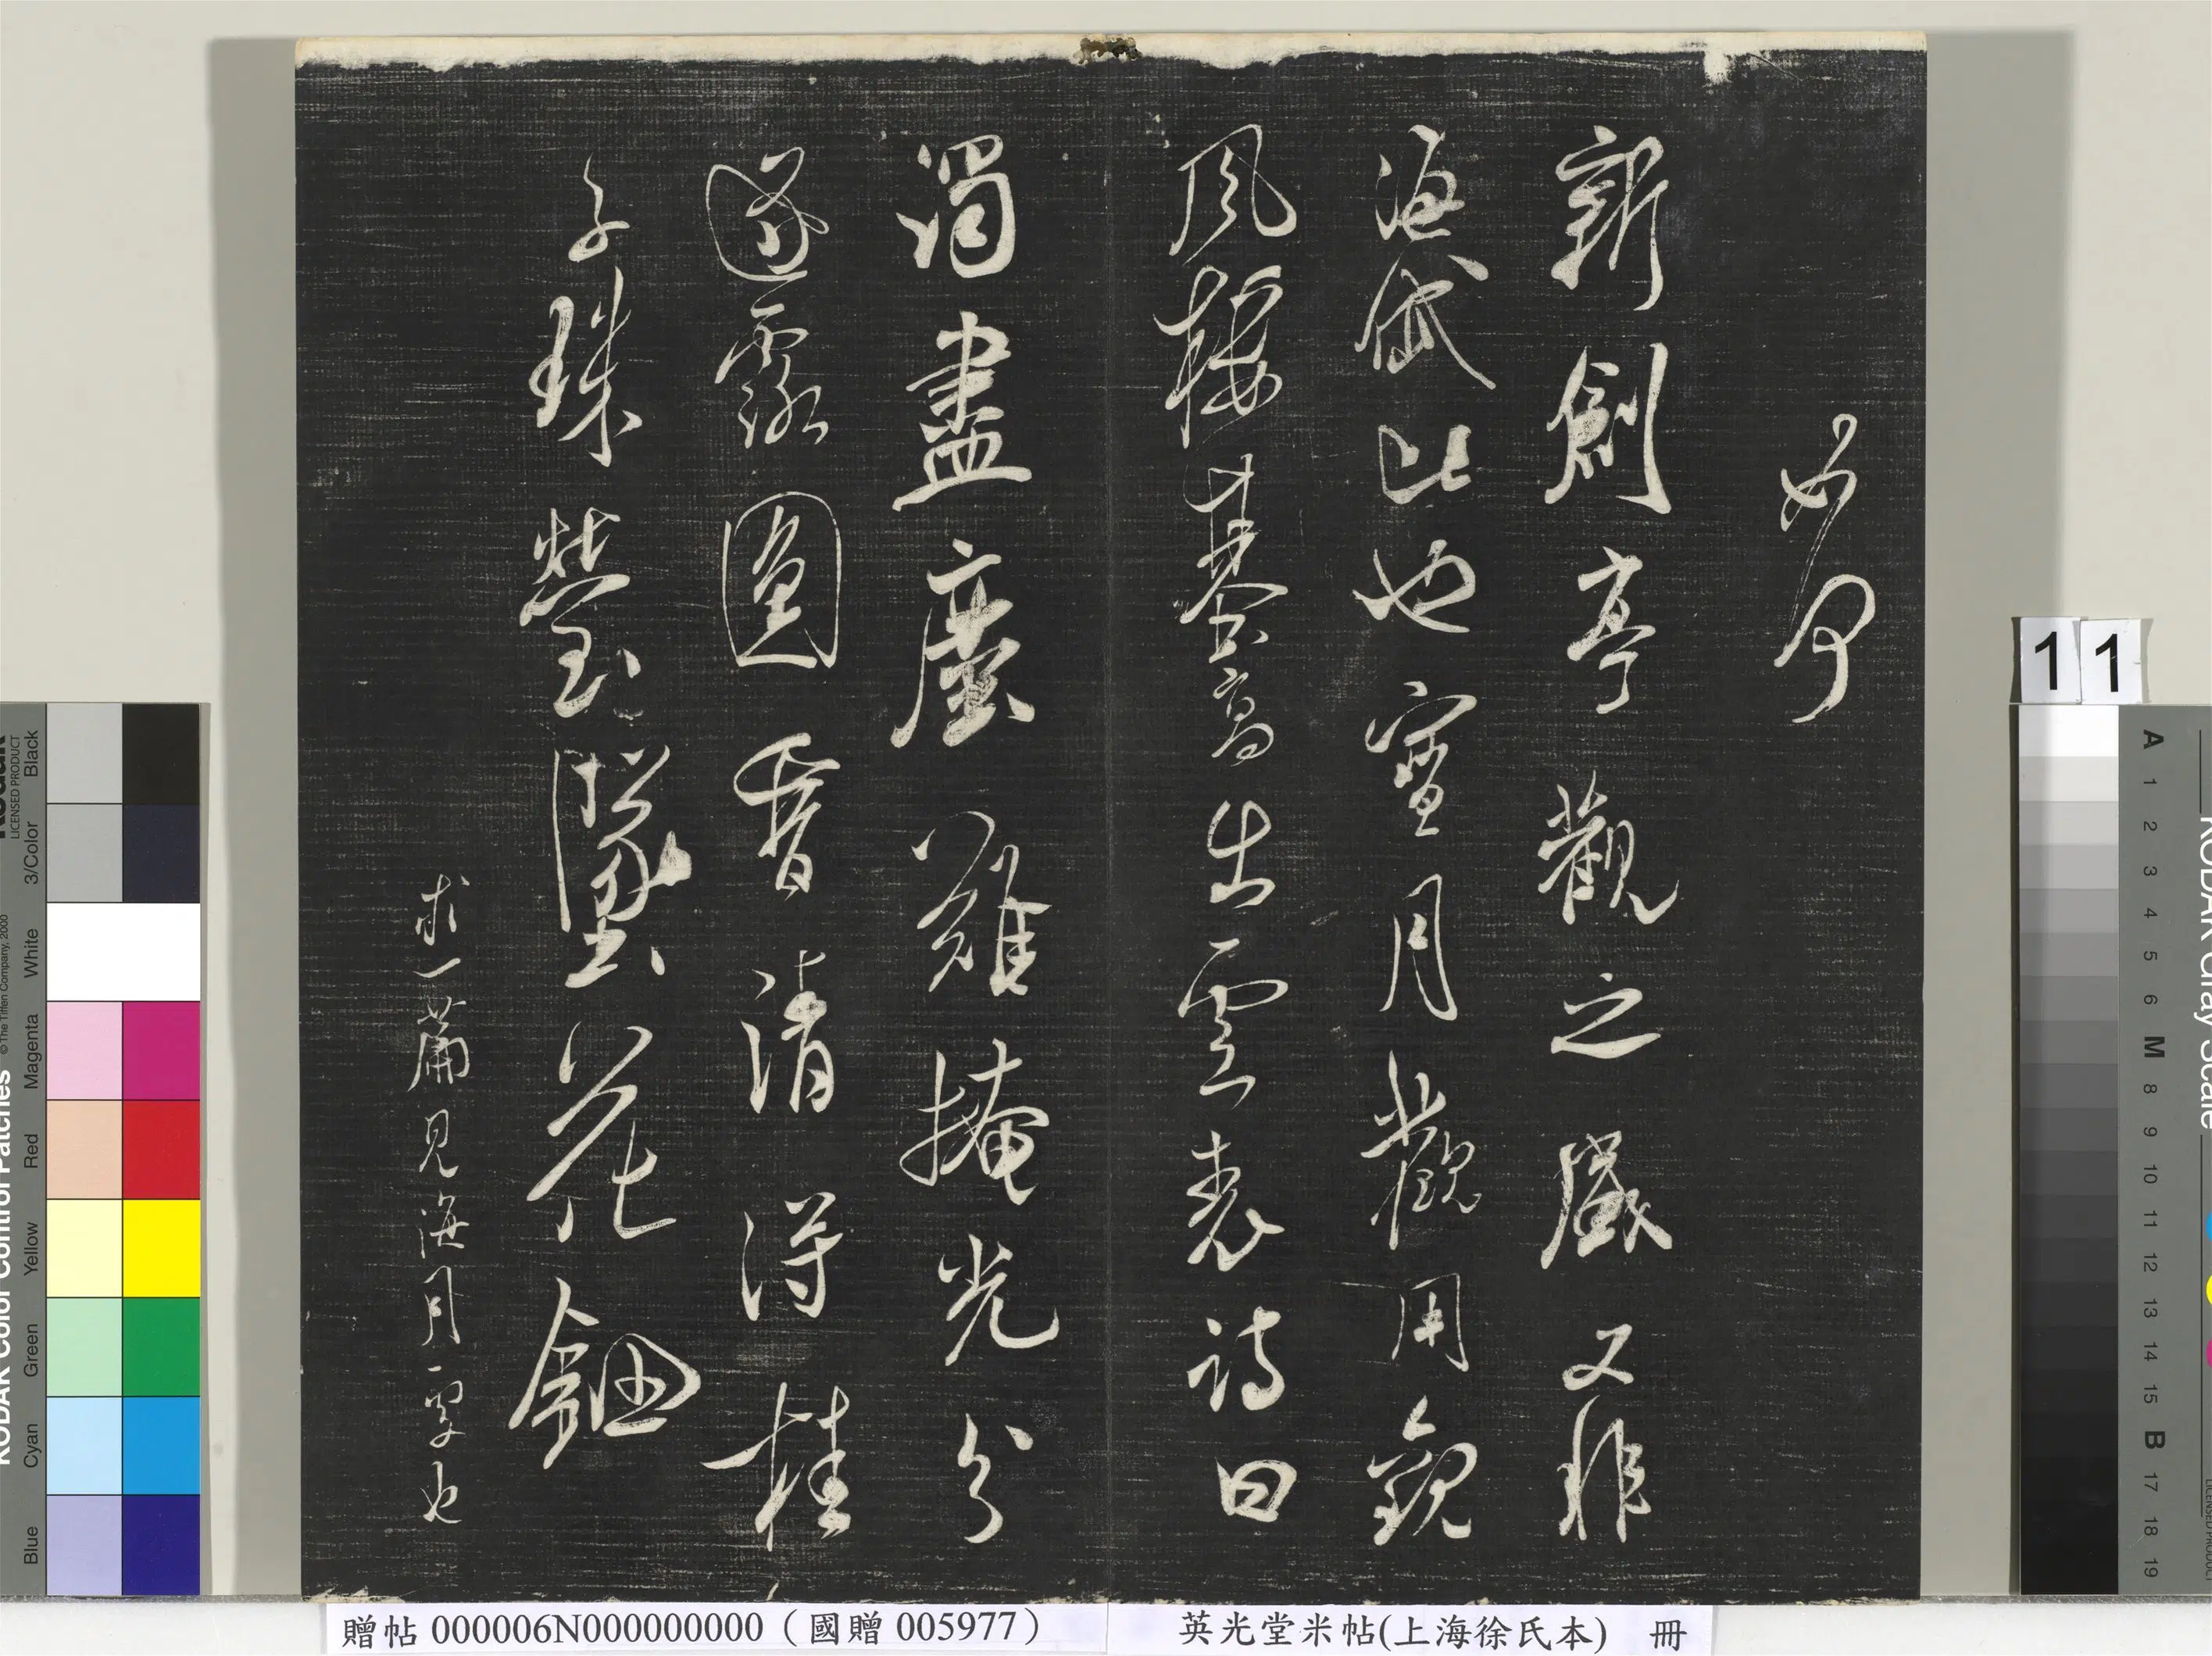 如何
新創亭觀之盛又非
海岱比也寶月觀用
風基高出雲表詩曰
濁盡塵難掩光分
遂露圓香清得桂
子珠瑩墜花鈿
求一篇見海月也
贈帖 000006N000000000（國贈 005977）
英光堂米帖(上海徐氏本) 冊
11
KODAK Gray Scale
A 1 2 3 4 5 6 M 8 9 10 11 12 13 14 15 B 17 18 19
KODAK Color Control Patches
LICENSED PRODUCT
© The Tiffen Company, 2000
Blue Cyan Green Yellow Red Magenta White 3/Color Black